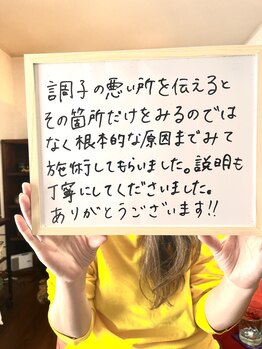 調子の悪い所を伝えると
その箇所だけをみるのでは
なく根本的な原因までみて
施術してもらいました。説明も
丁寧にしてくださいました。
ありがとうございます!!